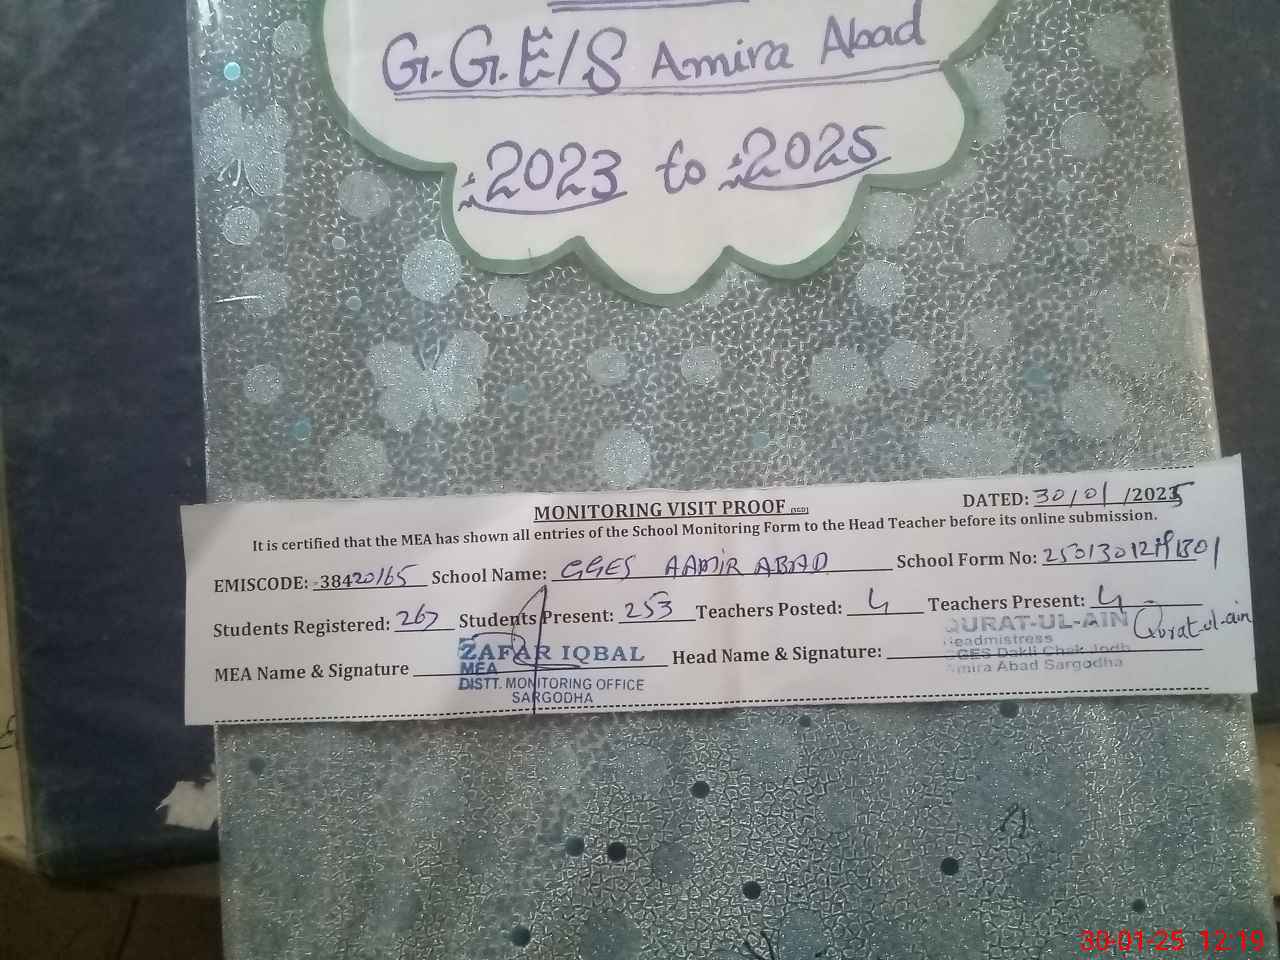 G.G.E/S Amira Abad
2023 to 2025
MONITORING VISIT PROOF (SGD)
DATED: 30/01/2025
It is certified that the MEA has shown all entries of the School Monitoring Form to the Head Teacher before its online submission.
EMISCODE: 38420165 School Name: GGES AAMIR ABAD School Form No:
Students Registered: 267 Students Present: 253 Teachers Posted: 4 Teachers Present: 4
MEA Name & Signature ZAFAR IQBAL Head Name & Signature: QURAT-UL-AIN Qurat-ul-ain
MEA
DISTT. MONITORING OFFICE
SARGODHA
Headmistress
GGES Dakli Chak Jodh
Amira Abad Sargodha
30-01-25 12:19